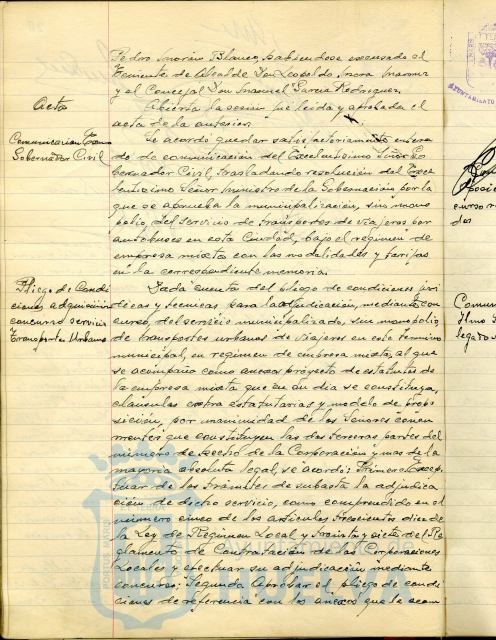 Pedro Moreno Blanco, habiendose excusado el
Teniente de Alcalde Don Leopoldo
y el Concejal Don Manuel Garcia Rodriguez.
Acta
Abierta la sesion fue leida y aprobada el
acta de la anterior.
Comunicacion Excmo
Gobernador Civil
Se acordo quedar satisfactoriamente entera
do de comunicacion del Excelentisimo Señor Go
bernador Civil, trasladando resolucion del Exce
lentisimo Señor Ministro de la Gobernacion por la
que se aprueba la municipalizacion, sin mono
polio, del servicio de transportes de viajeros por
autobuses en esta Ciudad, bajo el regimen de
empresa mixta con las modalidades y tarifas
en la correspondiente memoria.
Pliego de Condi
ciones adquisicion
concurso servicio
Transportes Urbanos
Dada cuenta del pliego de condiciones juri
dicas y tecnicas para la adjudicacion, mediante con
curso, del servicio municipalizado, sin monopolio
de transportes urbanos de viajeros en este termino
municipal, en regimen de empresa mixta, al que
se acompaña como anexos proyecto de estatutos de
la empresa mixta que en su dia se constituya,
clausulas extra estatutarias y modelo de propo
sicion, por unanimidad de los Señores concu
rrentes que constituyen las dos terceras partes del
numero de hecho de la Corporacion y mas de la
mayoria absoluta legal, se acordo: Primero Excep
tuar de los tramites de subasta la adjudica
cion de dicho servicio, como comprendido en el
numero cinco de los articulos trescientos once de
la Ley de Regimen Local y treinta y siete del Re
glamento de Contratacion de las Corporaciones
Locales y efectuar su adjudicacion mediante
concurso: Segundo Aprobar el pliego de condi
ciones de referencia con los anexos que le acom
AYUNTAMIENTO
curso
dos
Comun
Ilmo
legado
PORTUS MARIS